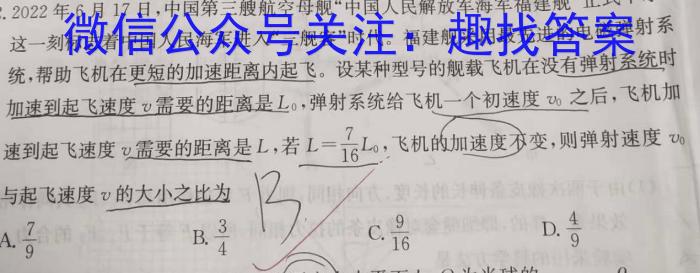 2.2022年6月17日,中国第三艘航空母舰“中国人民解放军海军福建舰”正式
微信公众号关注：趣找答案
这一刻标志着中国人民海军进入“三舰客”时代。福建舰 电磁弹射系
统,帮助飞机在更短的加速距离内起飞。设某种型号的舰载飞机在没有弹射系统时
加速到起飞速度 v 需要的距离是 L₀,弹射系统给飞机一个初速度 v₀ 之后,飞机加
速到起飞速度 v 需要的距离是 L,若 L=7/16 L₀,飞机的加速度不变,则弹射速度 v₀
与起飞速度 v 的大小之比为
B
A. 7/9 B. 3/4 C. 9/16 D. 4/9